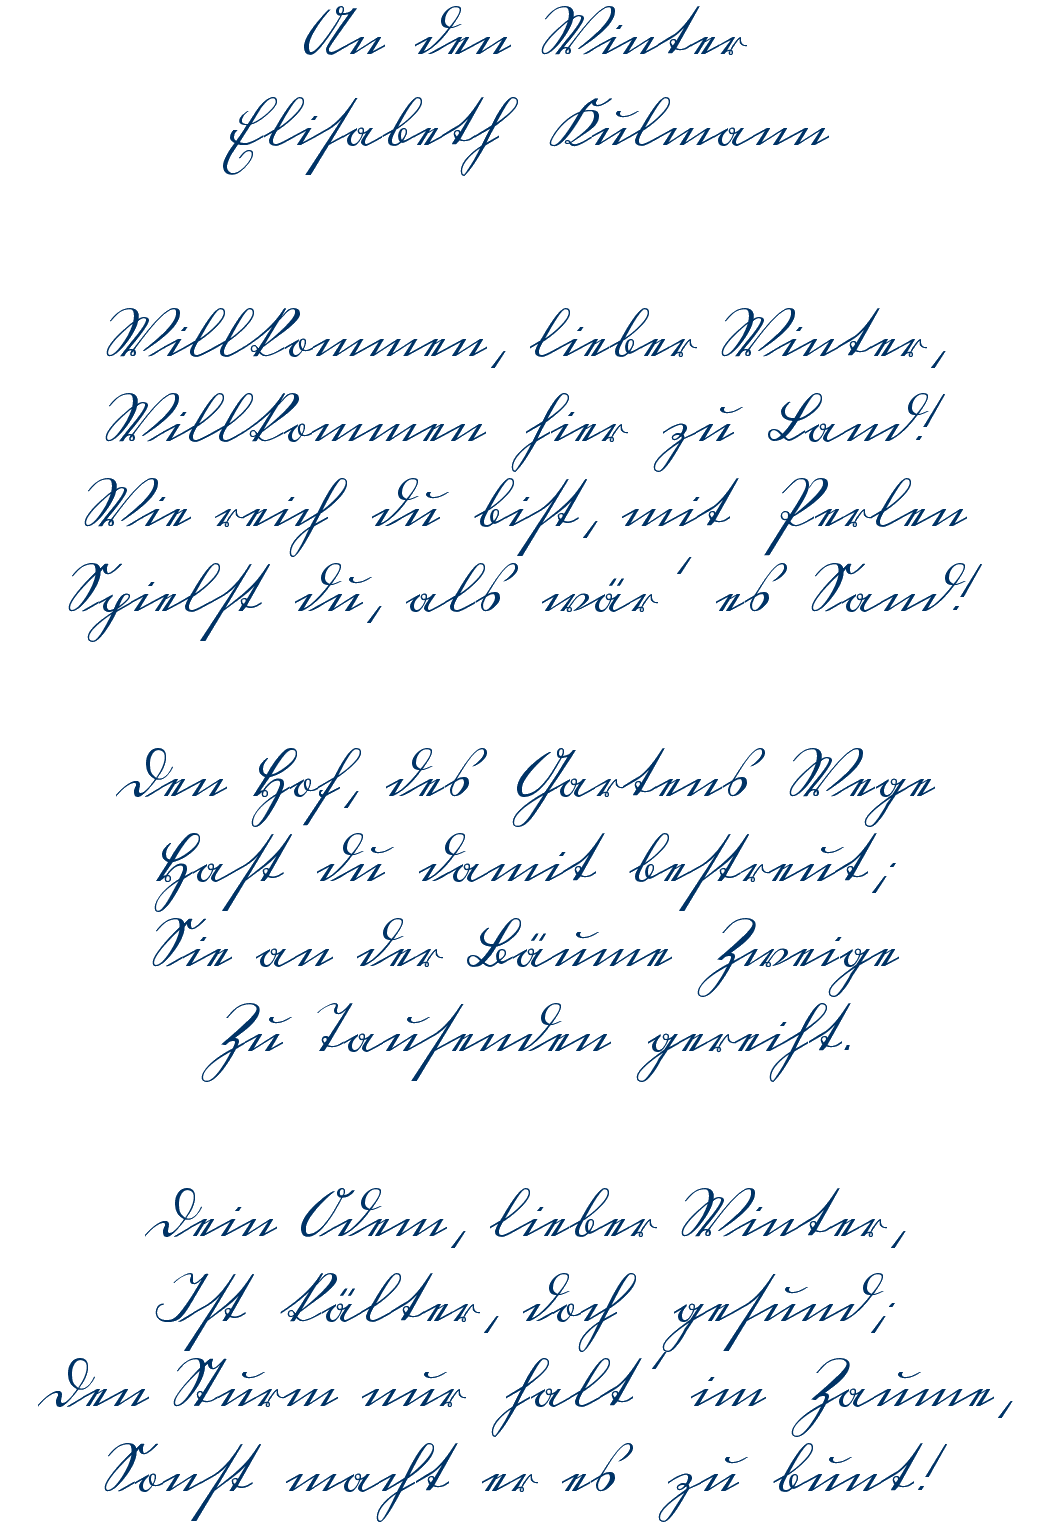 An den Winter
Elisabeth Kulmann
Willkommen, lieber Winter,
Willkommen hier zu Land!
Wie reich du bist, mit Perlen
Spielst du, als wär' es Sand!
Den Hof, des Gartens Wege
Hast du damit bestreut;
Sie an der Bäume Zweige
Zu Tausenden gereiht.
Dein Odem, lieber Winter,
Ist kälter, doch gesund;
Den Sturm nur halt' im Zaume,
Sonst macht er es zu bunt!